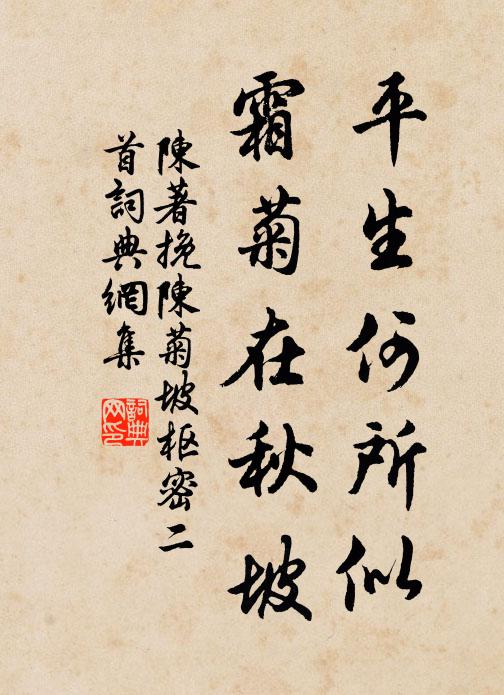 平生何所似
霜菊在秋坡
陳著挽陳菊坡枢密二
首詞典網集
詞典
网印